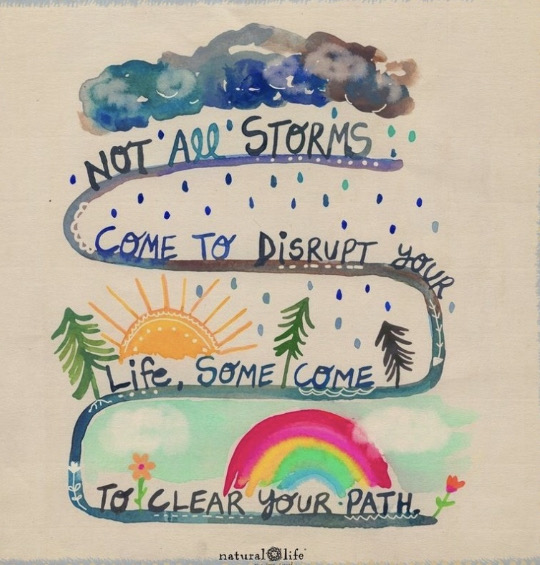 NOT All STORMS
COME TO DiSRUPT YOUR
Life, SOME COME
TO CLEAR YOUR PATH.
natural life